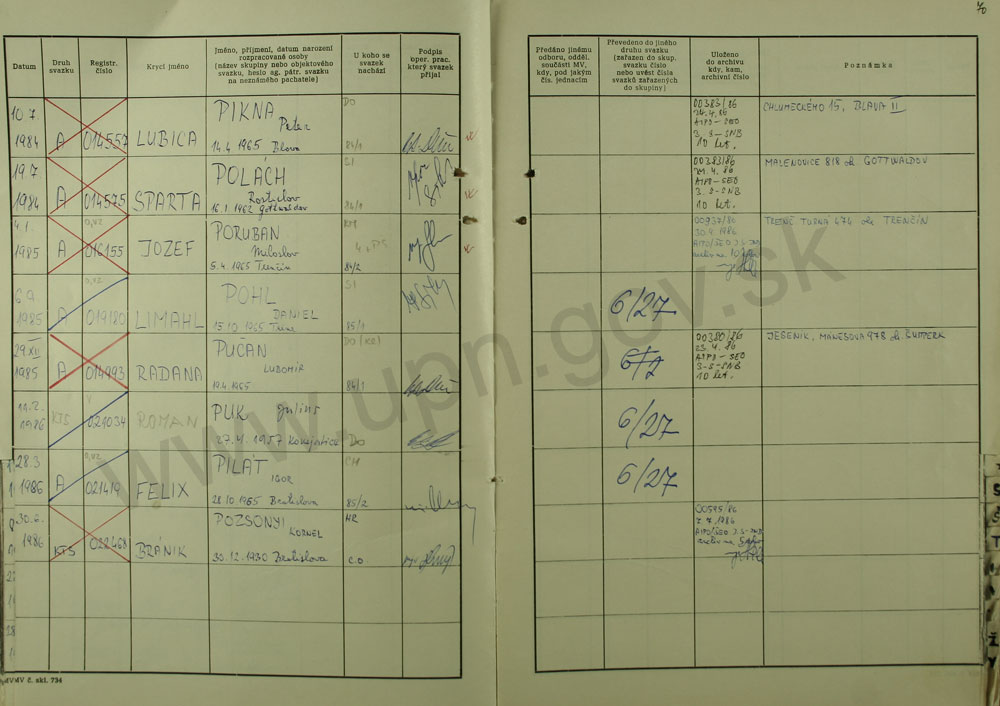 70
Datum
Druh
svazku
Registr.
číslo
Krycí jméno
Jméno, příjmení, datum narození
rozpracované osoby
(název skupiny nebo objektového
svazku, heslo ag. pátr. svazku
na neznámého pachatele)
U koho se
svazek
nachází
Podpis
oper. prac.
který svazek
přijal
Předáno jinému
odboru, odděl.
součásti MV,
kdy, pod jakým
čís. jednacím
Převedeno do jiného
druhu svazku
(zařazen do skup.
svazku číslo
nebo uvést čísla
svazků zařazených
do skupiny)
Uloženo
do archivu
kdy, kam,
archivní číslo
Poznámka
10.7.
1984
A
014557
LUBICA
PIKNA
Peter
14.4.1965 Blava
DO
84/1
00383/86
24.4.86
AIPO-SEO
3.S-SNB
10 let.
CHLUMECKÉHO 15, BLAVA II
19.7
1984
A
014575
SPARTA
POLÁCH
Rostislav
16.1.1962 Gottwaldov
SI
84/1
00383/86
24.4.86
AIPO-SEO
3.S-SNB
10 let.
MALENOVICE 818 ok GOTTWALDOV
4.1.
1985
A
016155
JOZEF
PORUBAN
Miloslav
5.4.1965 Trenčín
84/2
30.4.1986
TRENČ. TURNÁ 474 ok TRENČÍN
6.9
1985
A
019180
LIMAHL
POHL
DANIEL
15.10.1965
SI
85/1
6/27
29.XII
1985
A
014993
RADANA
PUČAN
LUBOMÍR
19.4.1965
DO (KR)
84/1
6/2
00380/86
23.4.86
AIPO-SEO
3-S-SNB
10 let.
JESENIK, MÁNESOVA 478 ok ŠUMPERK
11.2.
1986
KTS
021034
ROMAN
PUK Julius
27.4.1957
DO
6/27
28.3
1986
A
021419
FELIX
PILÁT
IGOR
28.10.1965 Bratislava
CH
85/2
6/27
30.6.
1986
KTS
022468
BRÁNIK
POZSONYI
KORNEL
30.12.1930 Bratislava
HR
C.O
00595/86
7.7.1986
www.upn.gov.sk
MVMV č. skl. 734